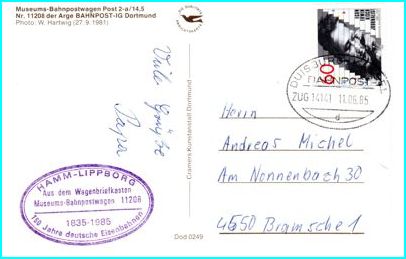 Museums-Bahnpostwagen Post 2-a/14.5
Nr. 11208 der Arge BAHNPOST-IG Dortmund
Photo: W. Hartwig (27. 9. 1981)
Viele Grüße
Papa
Cramers Kunstanstalt Dortmund
60
BAHNPOST
ZUG 14141 11.06.85
d
Herrn
Andreas Michel
Am Nonnenbach 30
4550 Bramsche 1
HAMM-LIPPBORG
Aus dem Wagenbriefkasten
Museums-Bahnpostwagen 11208
1835-1985
150 Jahre deutsche Eisenbahnen
Dod 0249